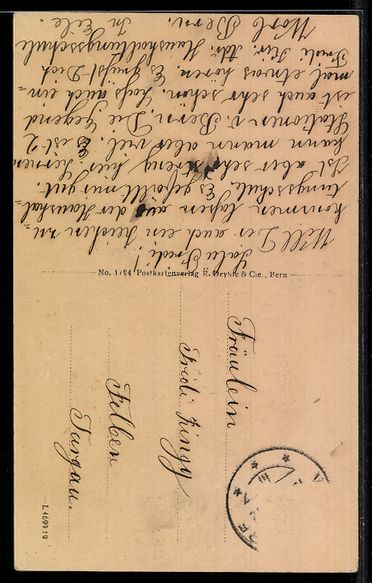 Salü Fridi!
Will Dir auch ein zeichen zu-
kommen lassen aus der Haushal-
tungsschule. Es gefällt mir gut.
Ist aber sehr streng hier, lernen
kann mann aber viel. Es ist 2
Stationen v. Bern. Die Gegend
ist auch sehr schön. Lass auch ein-
mal etwas hören. Es grüsst Dich
Fridi Adr. Haushaltungsschule
Worb Bern. In Eile
No. 1794 Postkartenverlag R. Deyhle & Cie., Bern
Fräulein
Fridi Ringy
Felben
Turgau.